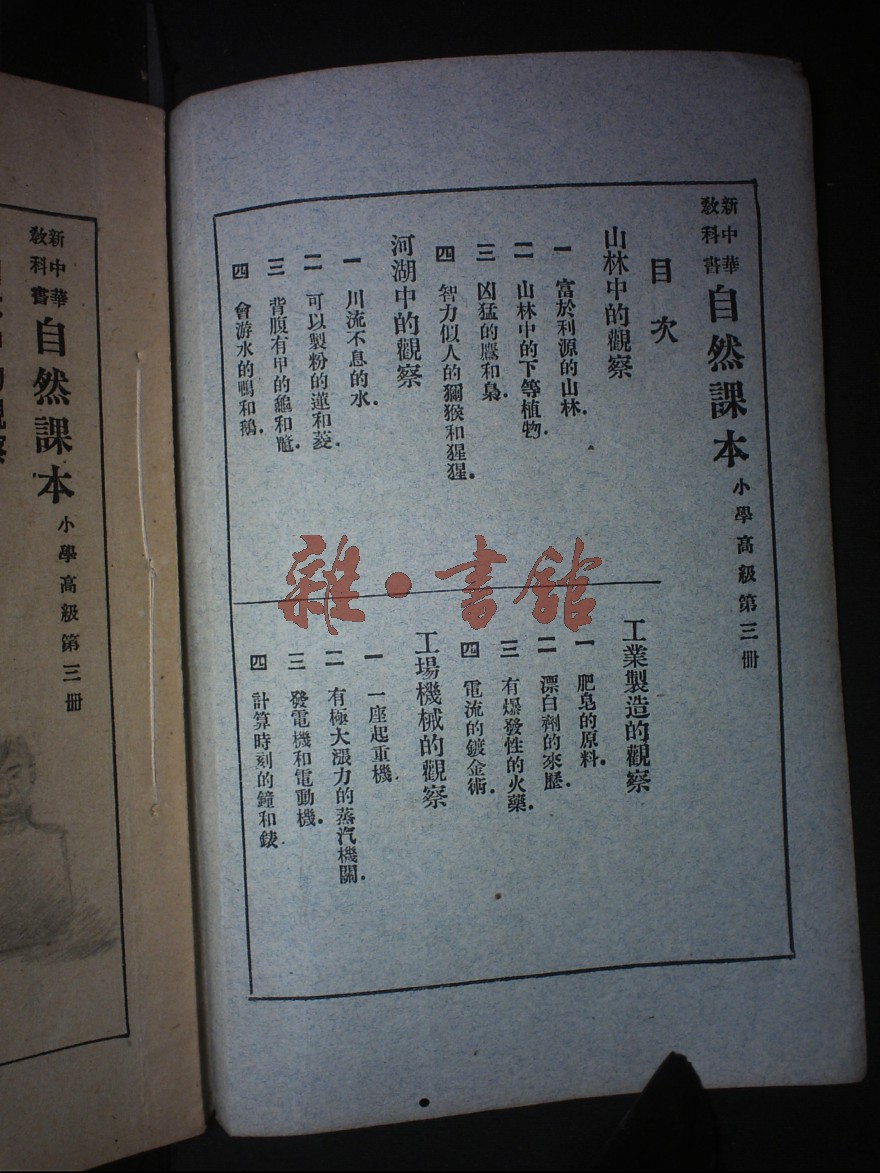 新中華教科書 自然課本 小學高級第三冊
目次
山林中的觀察
一 富於利源的山林.
二 山林中的下等植物.
三 凶猛的鷹和梟.
四 智力似人的獼猴和猩猩.
河湖中的觀察
一 川流不息的水.
二 可以製粉的蓮和菱.
三 背腹有甲的龜和鼈.
四 會游水的鴨和鵝.
工業製造的觀察
一 肥皂的原料.
二 漂白劑的來歷.
三 有爆發性的火藥.
四 電流的鍍金術.
工場機械的觀察
一 一座起重機
二 有極大漲力的蒸汽機關.
三 發電機和電動機.
四 計算時刻的鐘和錶
雜·書館
新中華教科書 自然課本 小學高級第三冊